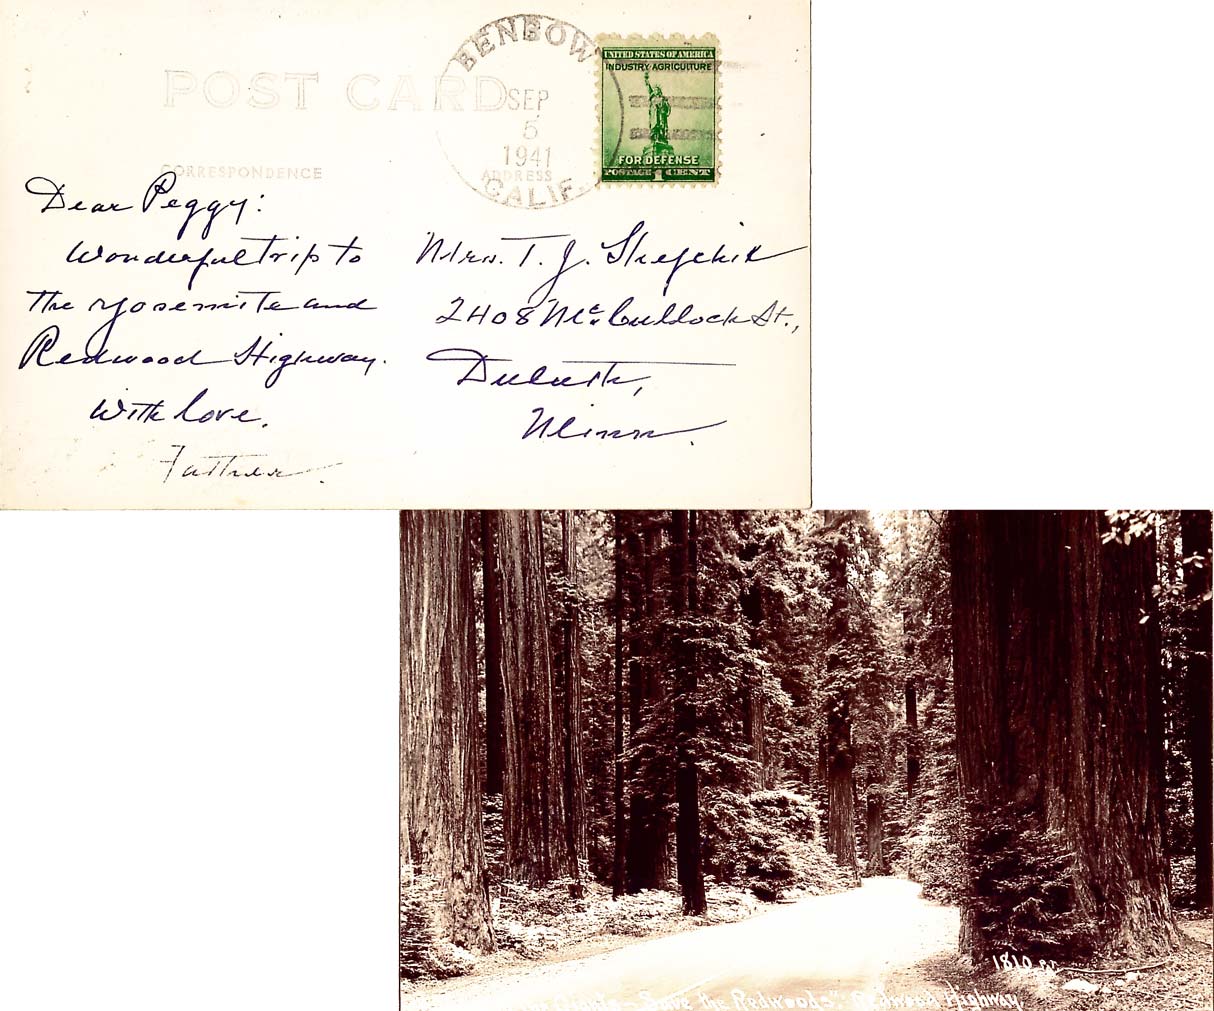 POST CARD
BENBOW
SEP
5
1941
CALIF.
UNITED STATES OF AMERICA
INDUSTRY AGRICULTURE
FOR DEFENSE
POSTAGE 1 CENT
CORRESPONDENCE
ADDRESS
Dear Peggy:
Wonderful trip to
the Yosemite and
Redwood Highway.
With love.
Father.
Mrs. T. J.
2408 McCullock St.,
Duluth,
Minn.
1810
Save the Redwoods". Redwood Highway.